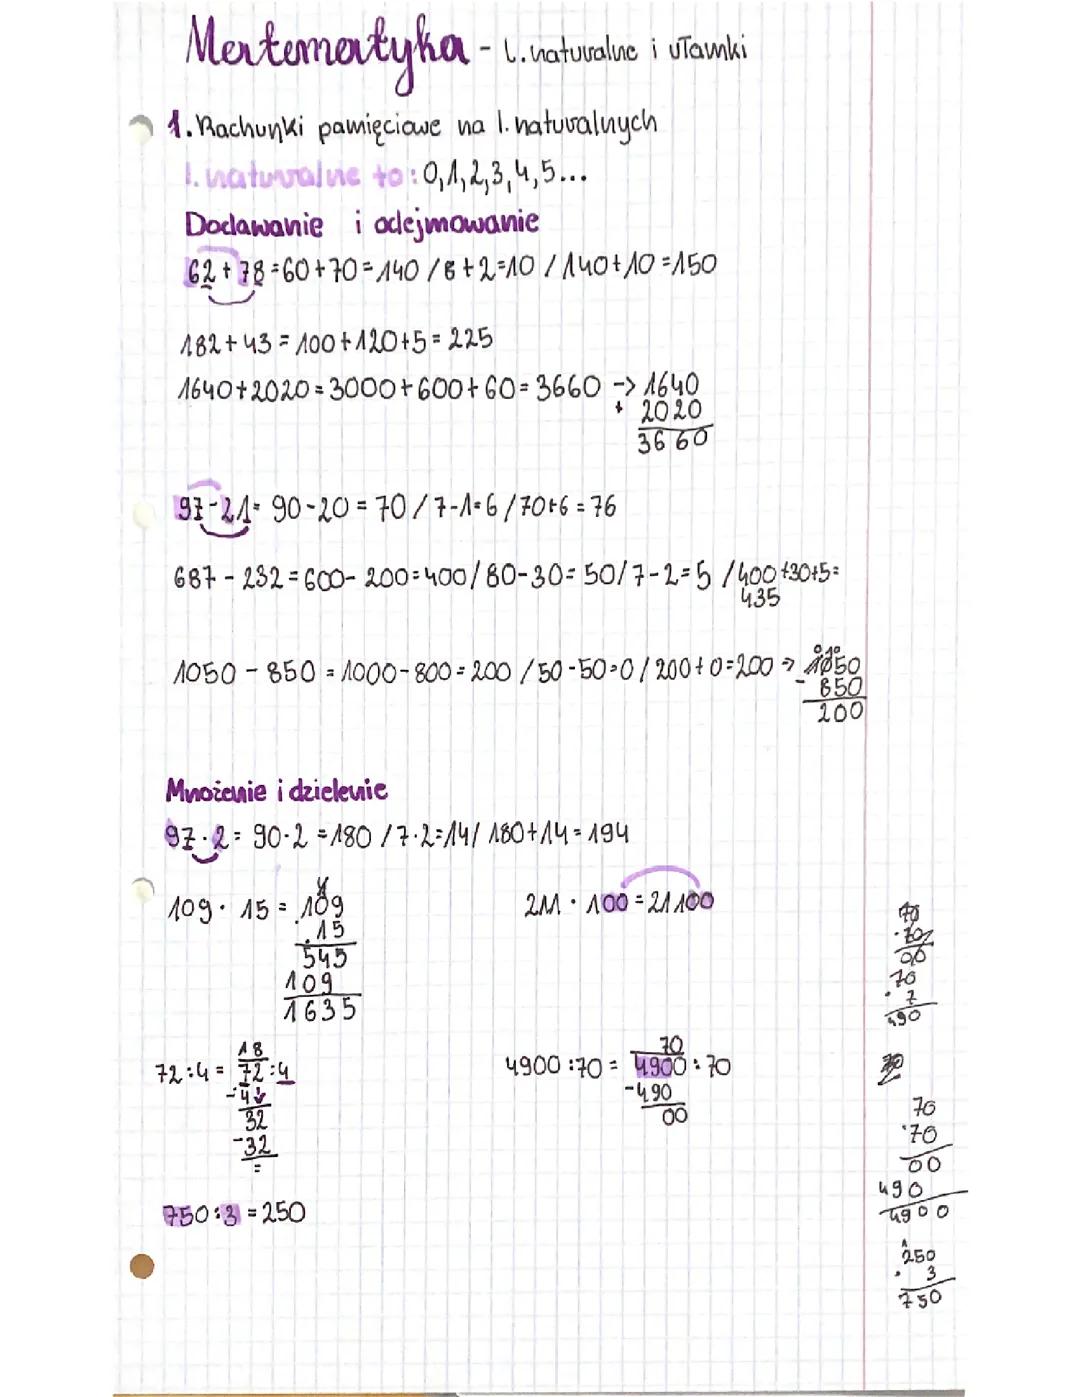 Matematyka - l. naturalne i ułamki
1. Rachunki pamięciowe na l. naturalnych
l. naturalne to: 0,1,2,3,4,5...
Dodawanie i odejmowanie
62 + 78 = 60 + 70 = 140 / 8 + 2 = 10 / 140 + 10 = 150
182 + 43 = 100 + 120 + 5 = 225
1640 + 2020 = 3000 + 600 + 60 = 3660 -> 1640
+ 2020
3660
97 - 21 = 90 - 20 = 70 / 7 - 1 = 6 / 70 + 6 = 76
687 - 232 = 600 - 200 = 400 / 80 - 30 = 50 / 7 - 2 = 5 / 400 + 30 + 5 =
435
1050 - 850 = 1000 - 800 = 200 / 50 - 50 = 0 / 200 + 0 = 200 -> 1050
- 850
200
Mnożenie i dzielenie
97 · 2 = 90 · 2 = 180 / 7 · 2 = 14 / 180 + 14 = 194
109 · 15 = 109
· 15
545
109
1635
211 · 100 = 21100
18
72 : 4 = 72 : 4
- 4
32
- 32
=
70
4900 : 70 = 4900 : 70
- 490
00
750 : 3 = 250
70
· 7
490
70
· 70
00
490
4900
250
· 3
750